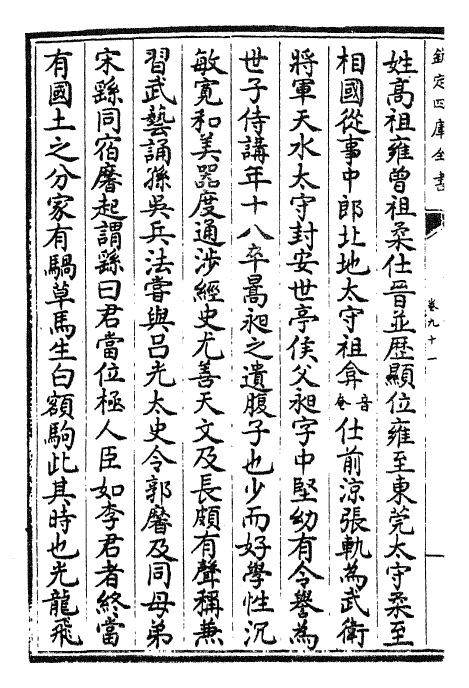 欽定四庫全書
卷九十一
姓高祖雍曾祖柔仕晉並歷顯位雍至東莞太守柔至
相國從事中郎北地太守祖弇音奄仕前涼張軌為武衛
將軍天水太守封安世亭侯父昶字中堅幼有令譽為
世子侍講年十八卒暠昶之遺腹子也少而好學性沉
敏寬和美器度通涉經史尤善天文及長頗有聲稱兼
習武藝誦孫吳兵法嘗與吕光太史令郭黁及同母弟
宋繇同宿黁起謂繇曰君當位極人臣如李君者終當
有國土之分家有騧草馬生白額駒此其時也光龍飛